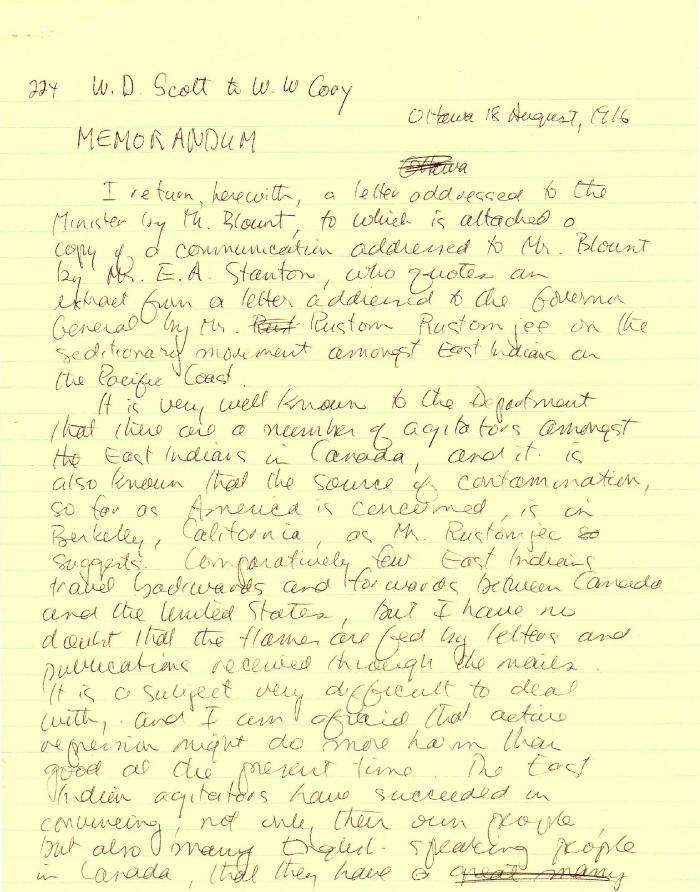 224 W. D. Scott to W. W Cory
Ottawa 18 August, 1916
MEMORANDUM
Ottawa
I return, herewith, a letter addressed to the
Minister by Mr. Blount, to which is attached a
copy of a communication addressed to Mr. Blount
by Mr. E. A. Stanton, who quotes an
extract from a letter addressed to the Governor
General by Mr. Rust Rustom Rustomjee on the
seditionary movement amongst East Indians on
the Pacific Coast.
It is very well known to the Department
that there are a number of agitators amongst
the East Indians in Canada, and it is
also known that the source of contamination,
so far as America is concerned, is in
Berkeley, California, as Mr. Rustomjee so
suggests. Comparatively few East Indians
travel backwards and forwards between Canada
and the United States, but I have no
doubt that the flames are fed by letters and
publications received through the mails.
It is a subject very difficult to deal
with, and I am afraid that active
repression might do more harm than
good at the present time. The East
Indian agitators have succeeded in
convincing, not only their own people,
but also many English-speaking people
in Canada, that they have a great many